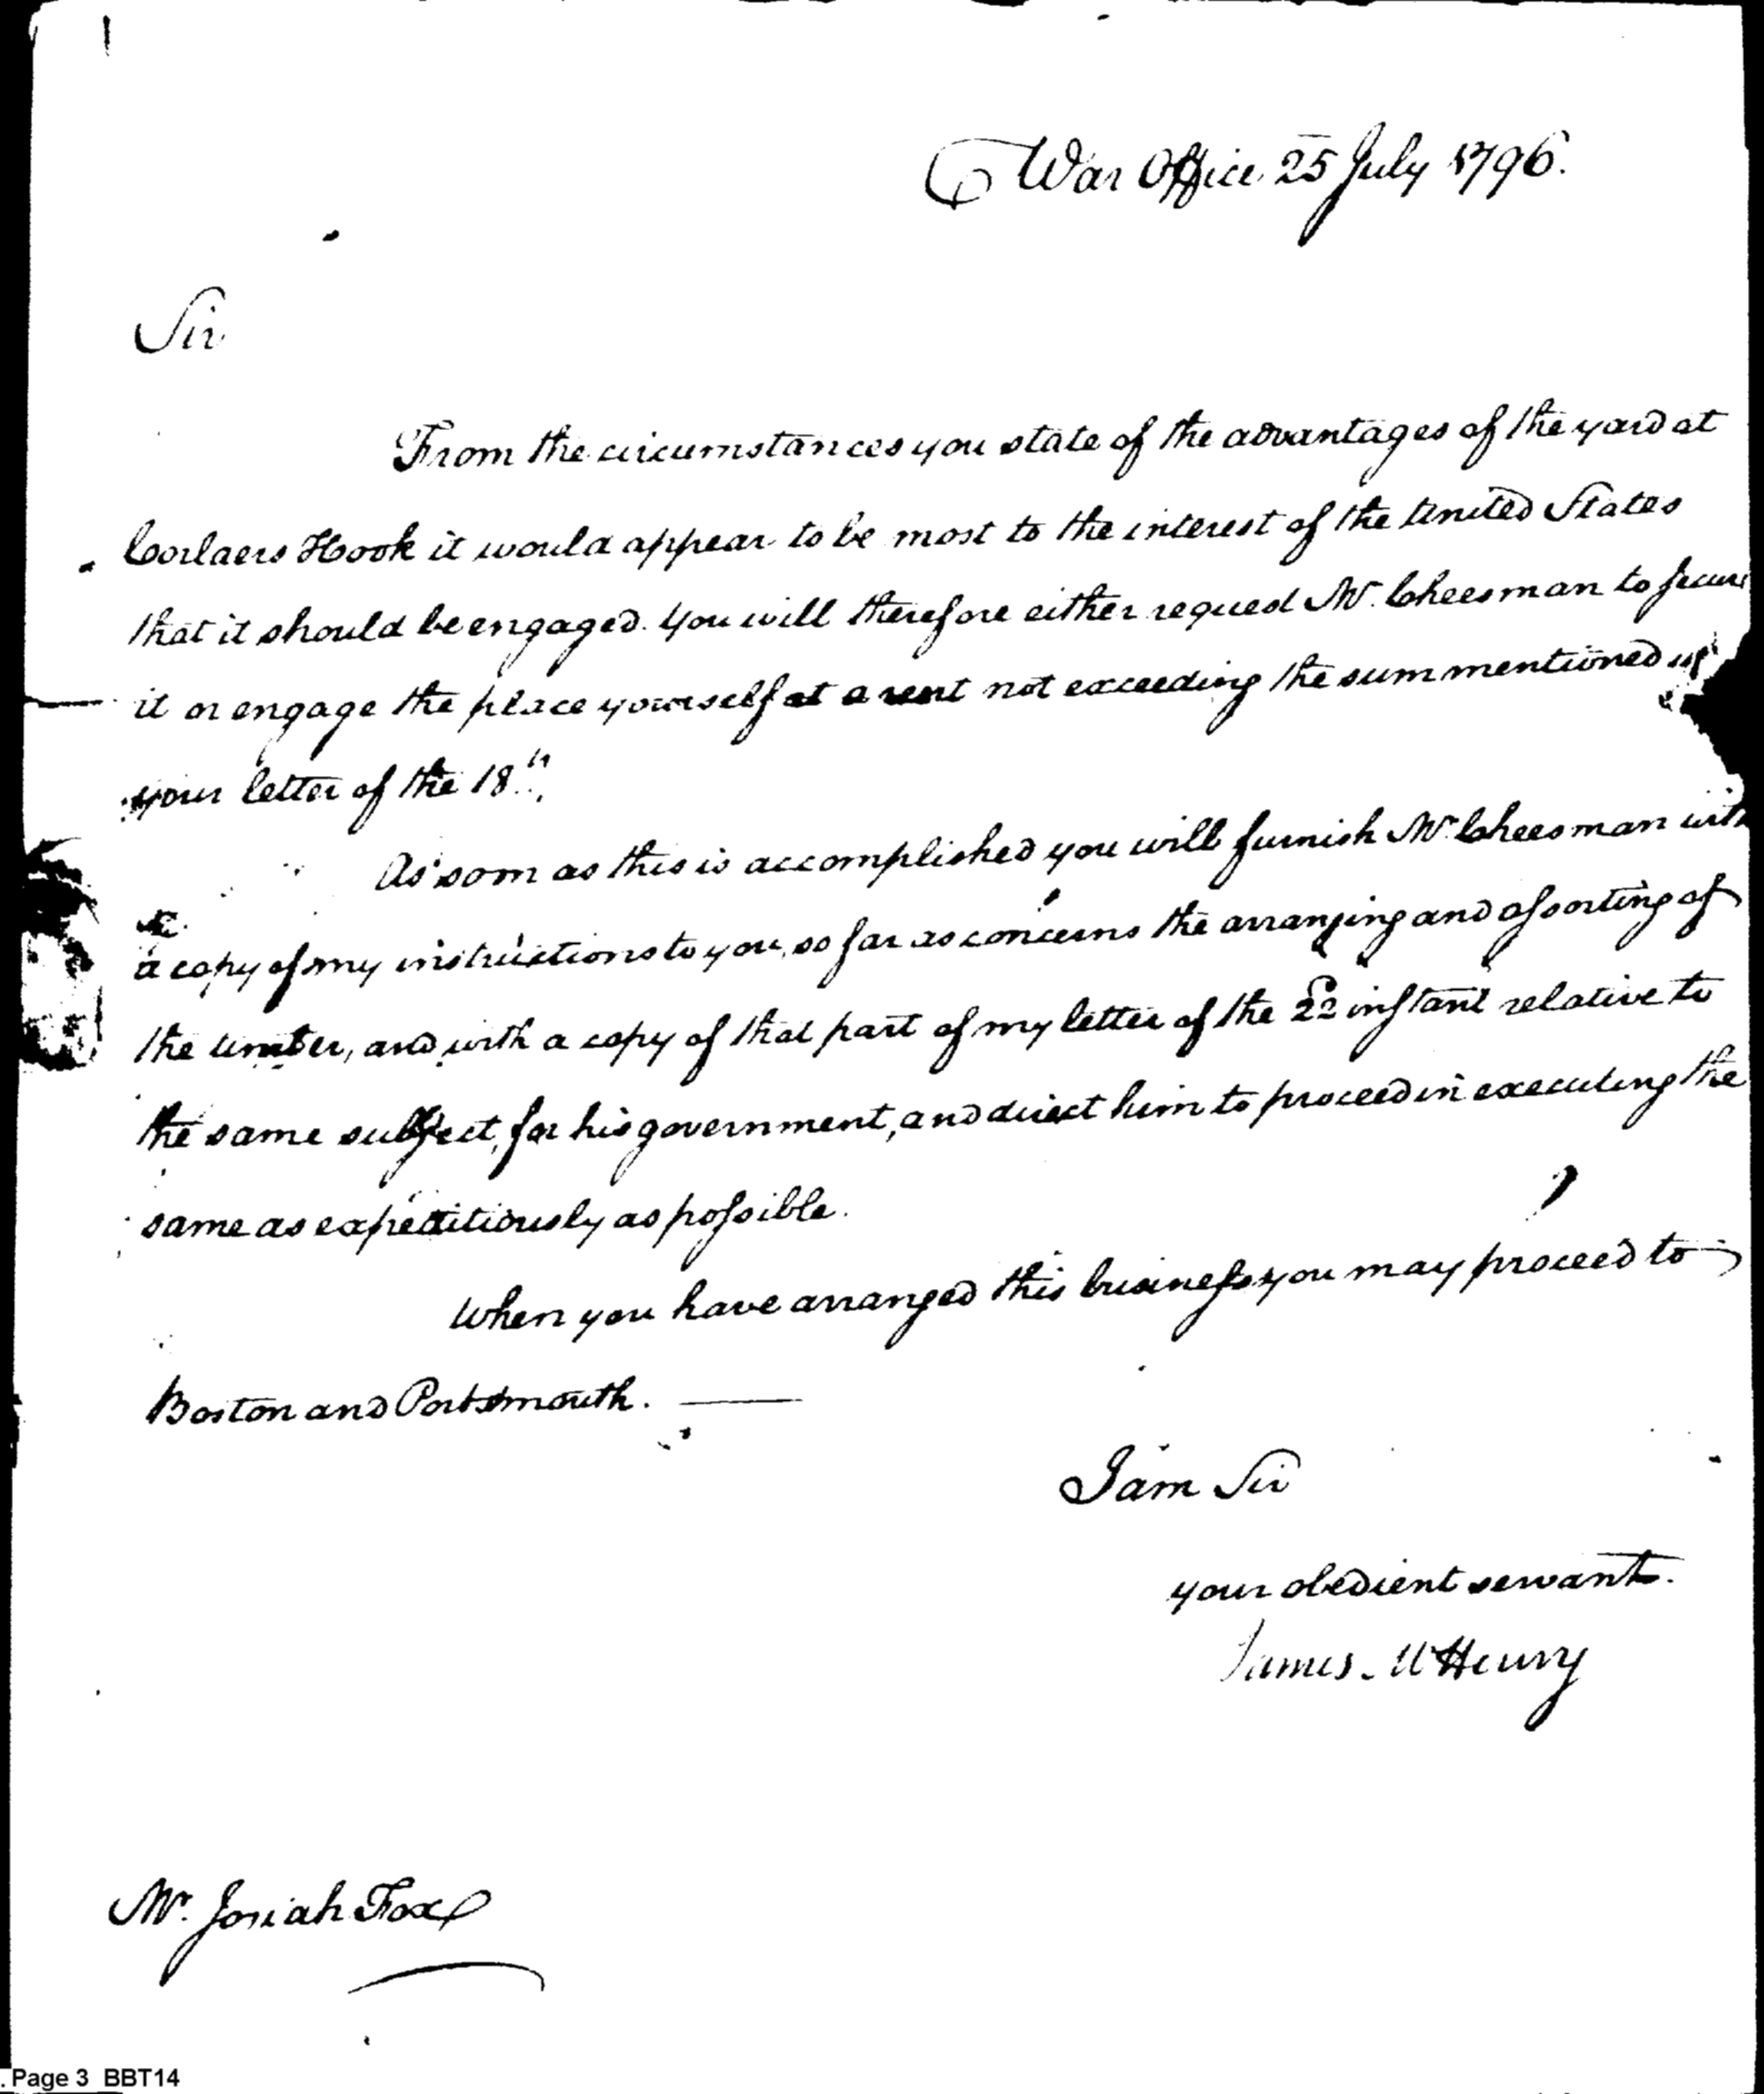 War Office 25 July 1796.
Sir
From the circumstances you state of the advantages of the yard at
Corlaers Hook it would appear to be most to the interest of the United States
that it should be engaged. You will therefore either request Mr. Cheesman to secure
it or engage the place yourself at a rent not exceeding the sum mentioned in
your letter of the 18th.
As soon as this is accomplished you will furnish Mr. Cheesman with
a copy of my instructions to you, so far as concerns the arranging and assorting of
the timber, and with a copy of that part of my letter of the 22d instant relative to
the same subject, for his government, and direct him to proceed in executing the
same as expeditiously as possible.
When you have arranged this business you may proceed to
Boston and Portsmouth.
I am Sir
your obedient servant.
James McHenry
Mr. Josiah Fox
. Page 3 BBT14